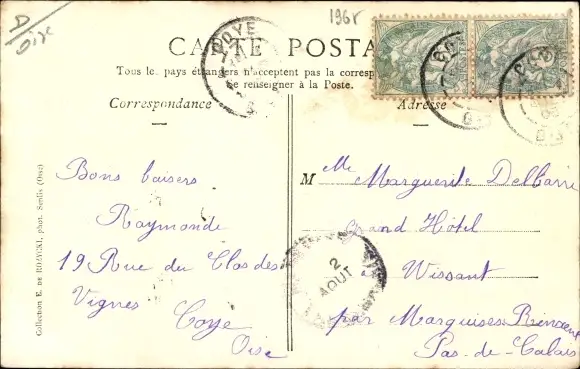 D/
Oise
1961
CARTE POSTA
Tous les pays étrangers n'acceptent pas la corresp
se renseigner à la Poste.
Correspondance
Adresse
COYE
Bons baisers
Raymonde
19 Rue du Clos des
Vignes Coye
Oise
Mlle Marguerite Delbarre
Grand Hôtel
à Wissant
par Marquises
Pas-de-Calais
2
AOUT
Collection E. de phot. Senlis (Oise)